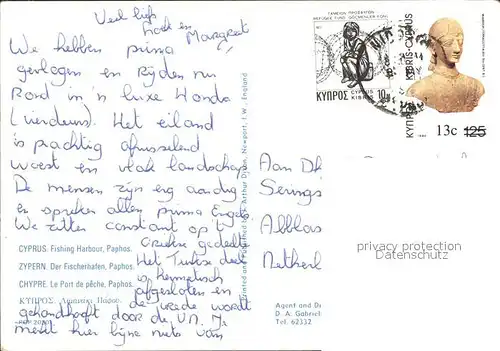 Veel liefs
Loek en
Margreet
We hebben prima
gevlogen en Rijden nu
Rond in 'n luxe Honda
(vierdeurs). Het eiland
is prachtig afwisselend
woest en vlak landschap.
De mensen zijn erg aardig
en spreken allen prima Engels
We zitten constant op 't
Griekse gedeelte
Het Turkse deel
is hermetisch
afgesloten en
de vrede wordt
gehandhaafd door de V.N. Je
merkt hier bijna niets van
CYPRUS. Fishing Harbour, Paphos.
ZYPERN. Der Fischerhafen, Paphos.
CHYPRE. Le Port de pêche, Paphos.
ΚΥΠΡΟΣ. Λιμανάκι Πάφου.
Printed and Published by Arthur Dixon, Newport, I.W., England
ΤΑΜΕΙΟΝ ΠΡΟΣΦΥΓΩΝ
REFUGEE FUND GÖÇMENLER FONU
ΚΥΠΡΟΣ 10 CYPRUS KIBRIS
ΚΥΠΡΟΣ KIBRIS-CYPRUS
13c 125
Aan
Nether
privacy protection
Agent and
D. A. Gabriel
Tel. 62332